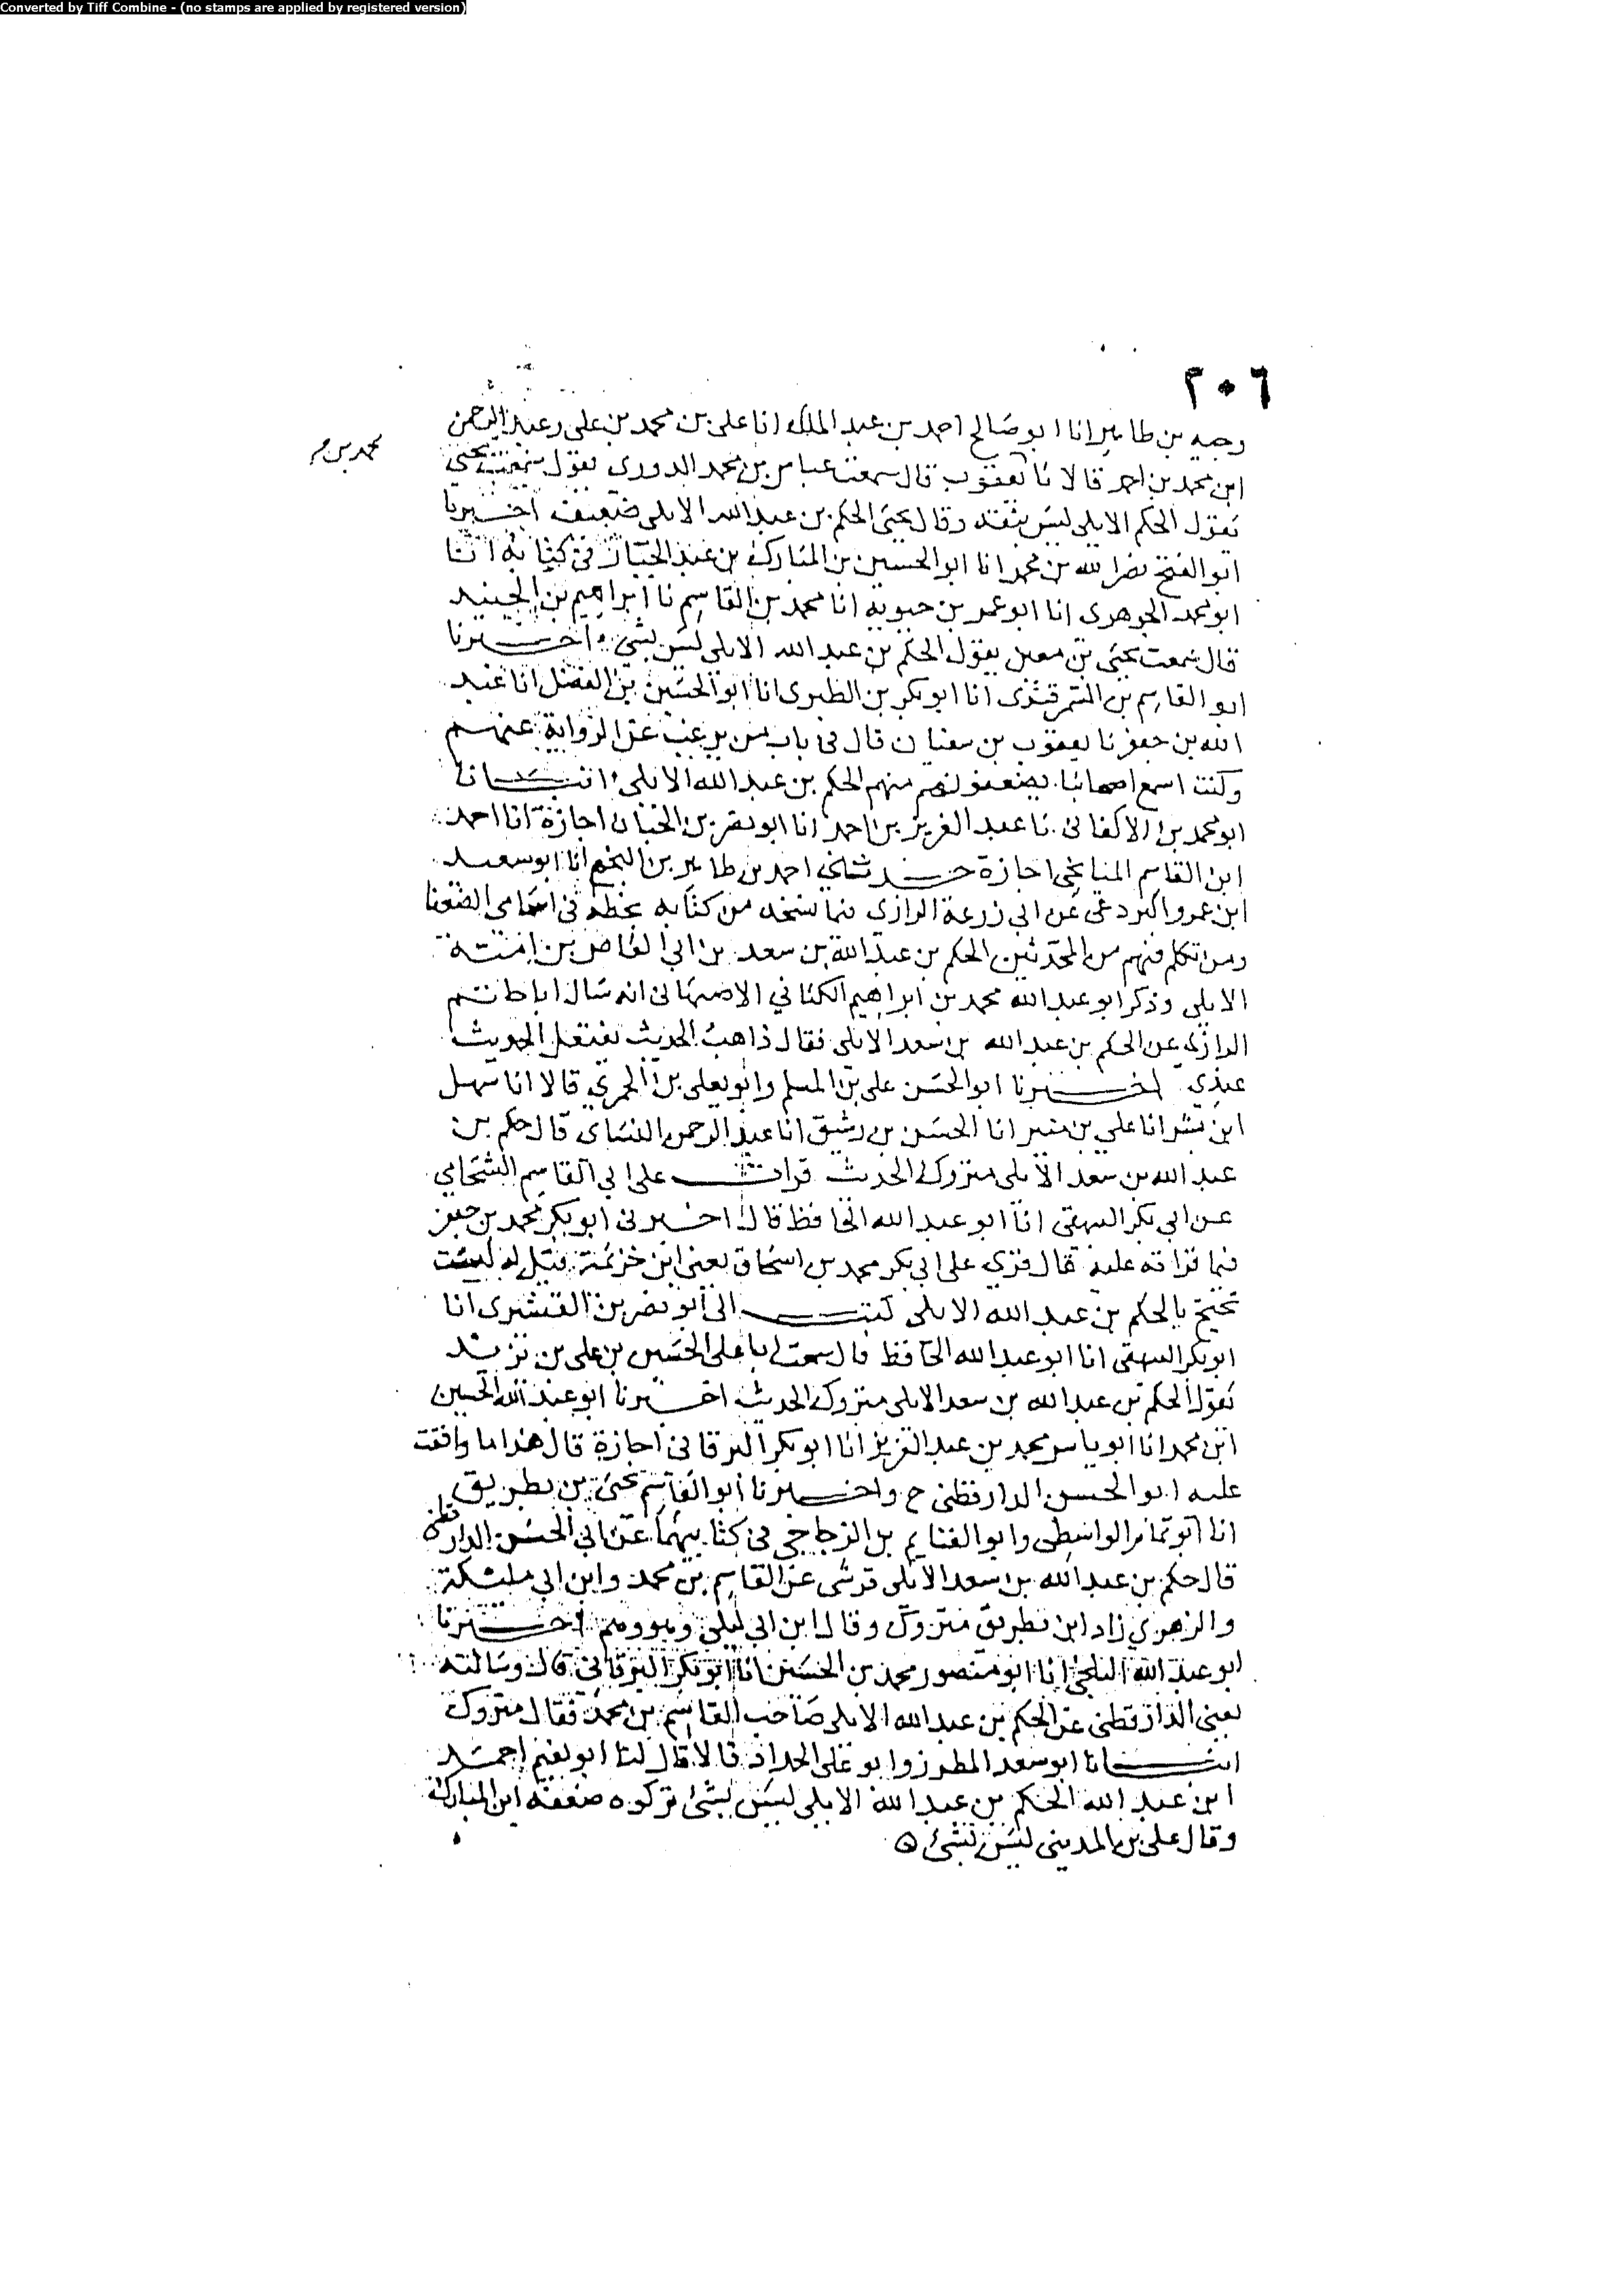 Converted by Tiff Combine - (no stamps are applied by registered version)
٢٠٦
وجيه بن طاهر انا ابو صالح احمد بن عبد الملك انا علي بن محمد بن علي وعبد الرحمن
محمد بن
ابن محمد بن احمد قالا نا يعقوب قال سمعت عباس بن محمد الدوري يقول سمعت يحيى
يقول الحكم الايلي ليس بثقة وقال يحيى الحكم بن عبد الله الايلي ضعيف اخبرنا
ابو الفتح نصر الله بن محمد انا ابو الحسين بن المبارك بن عبد الجبار في كتابه انا
ابو محمد الجوهري انا ابو عمر بن حيويه انا محمد بن القاسم نا ابراهيم بن الجنيد
قال سمعت يحيى بن معين يقول الحكم بن عبد الله الايلي ليس بشيء اخبرنا
ابو القاسم بن السمرقندي انا ابو بكر بن الطبري انا ابو الحسين بن الفضل انا عبد
الله بن جعفر نا يعقوب بن سفيان قال في باب من يرغب عن الرواية عنهم
وكنت اسمع اصحابنا يضعفونهم منهم الحكم بن عبد الله الايلي انبانا
ابو محمد بن الاكفاني نا عبد العزيز بن احمد انا ابو نصر بن الجبان اجازة انا احمد
ابن القاسم الميانجي اجازة حدثني احمد بن طاهر بن النجم انا ابو سعيد
ابن عمرو البردعي عن ابي زرعة الرازي فيما نسخه من كتابه بخطه في اسامي الضعفا
ومن تكلم فيهم من المحدثين الحكم بن عبد الله بن سعد بن ابي العاص بن امية
الايلي وذكر ابو عبد الله محمد بن ابراهيم الكتاني الاصبهاني انه سال ابا حاتم
الرازي عن الحكم بن عبد الله بن سعد الايلي فقال ذاهب الحديث يفتعل الحديث
عندي اخبرنا ابو الحسن علي بن المسلم وابو يعلى بن قالا انا سهل
ابن بشر انا علي بن منير انا الحسن بن رشيق انا عبد الرحمن النساي قال حكم بن
عبد الله بن سعد الايلي متروك الحديث قرات على ابي القاسم الشحامي
عن ابي بكر البيهقي انا ابو عبد الله الحافظ قال اخبرني ابو بكر محمد بن جعفر
فيما قراته عليه قال قري على ابي بكر محمد بن اسحاق يعني ابن خزيمة قيل له لست
تحتج بالحكم بن عبد الله الايلي كتب الي ابو نصر بن القشيري انا
ابو بكر البيهقي انا ابو عبد الله الحافظ قال سمعت ابا علي الحسين بن علي بن يزيد
يقول الحكم بن عبد الله بن سعد الايلي متروك الحديث اخبرنا ابو عبد الله الحسين
ابن محمد انا ابو ياسر محمد بن عبد العزيز انا ابو بكر البرقاني اجازة قال هذا ما وافقت
عليه ابو الحسن الدارقطني ح واخبرنا ابو القاسم يحيى بن بطريق
انا ابو تمام الواسطي وابو الغنايم بن الزجاجي في كتابيهما عن ابي الحسن الدارقطني
قال حكم بن عبد الله بن سعد الايلي قرشي عن القاسم بن محمد وابن ابي مليكة
والزهري زاد ابن بطريق متروك وقال ابن ابي ليلى وهو وهم اخبرنا
ابو عبد الله البلخي انا ابو منصور محمد بن الحسين انا ابو بكر البرقاني قال وسالته
يعني الدارقطني عن الحكم بن عبد الله الايلي صاحب القاسم بن محمد فقال متروك
انبانا ابو سعد المطرز وابو علي الحداد قالا قال لنا ابو نعيم احمد
ابن عبد الله الحكم بن عبد الله الايلي ليس بشيء تركوه ضعفه ابن المبارك
وقال علي بن المديني ليس بشيء ٥